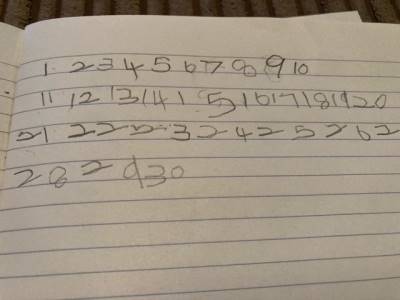 1 2 3 4 5 6 7 8 9 10
11 12 13 14 15 16 17 18 19 20
21 22 2 2 3 2 4 2 5 2 6 2
2 8 2 9 30